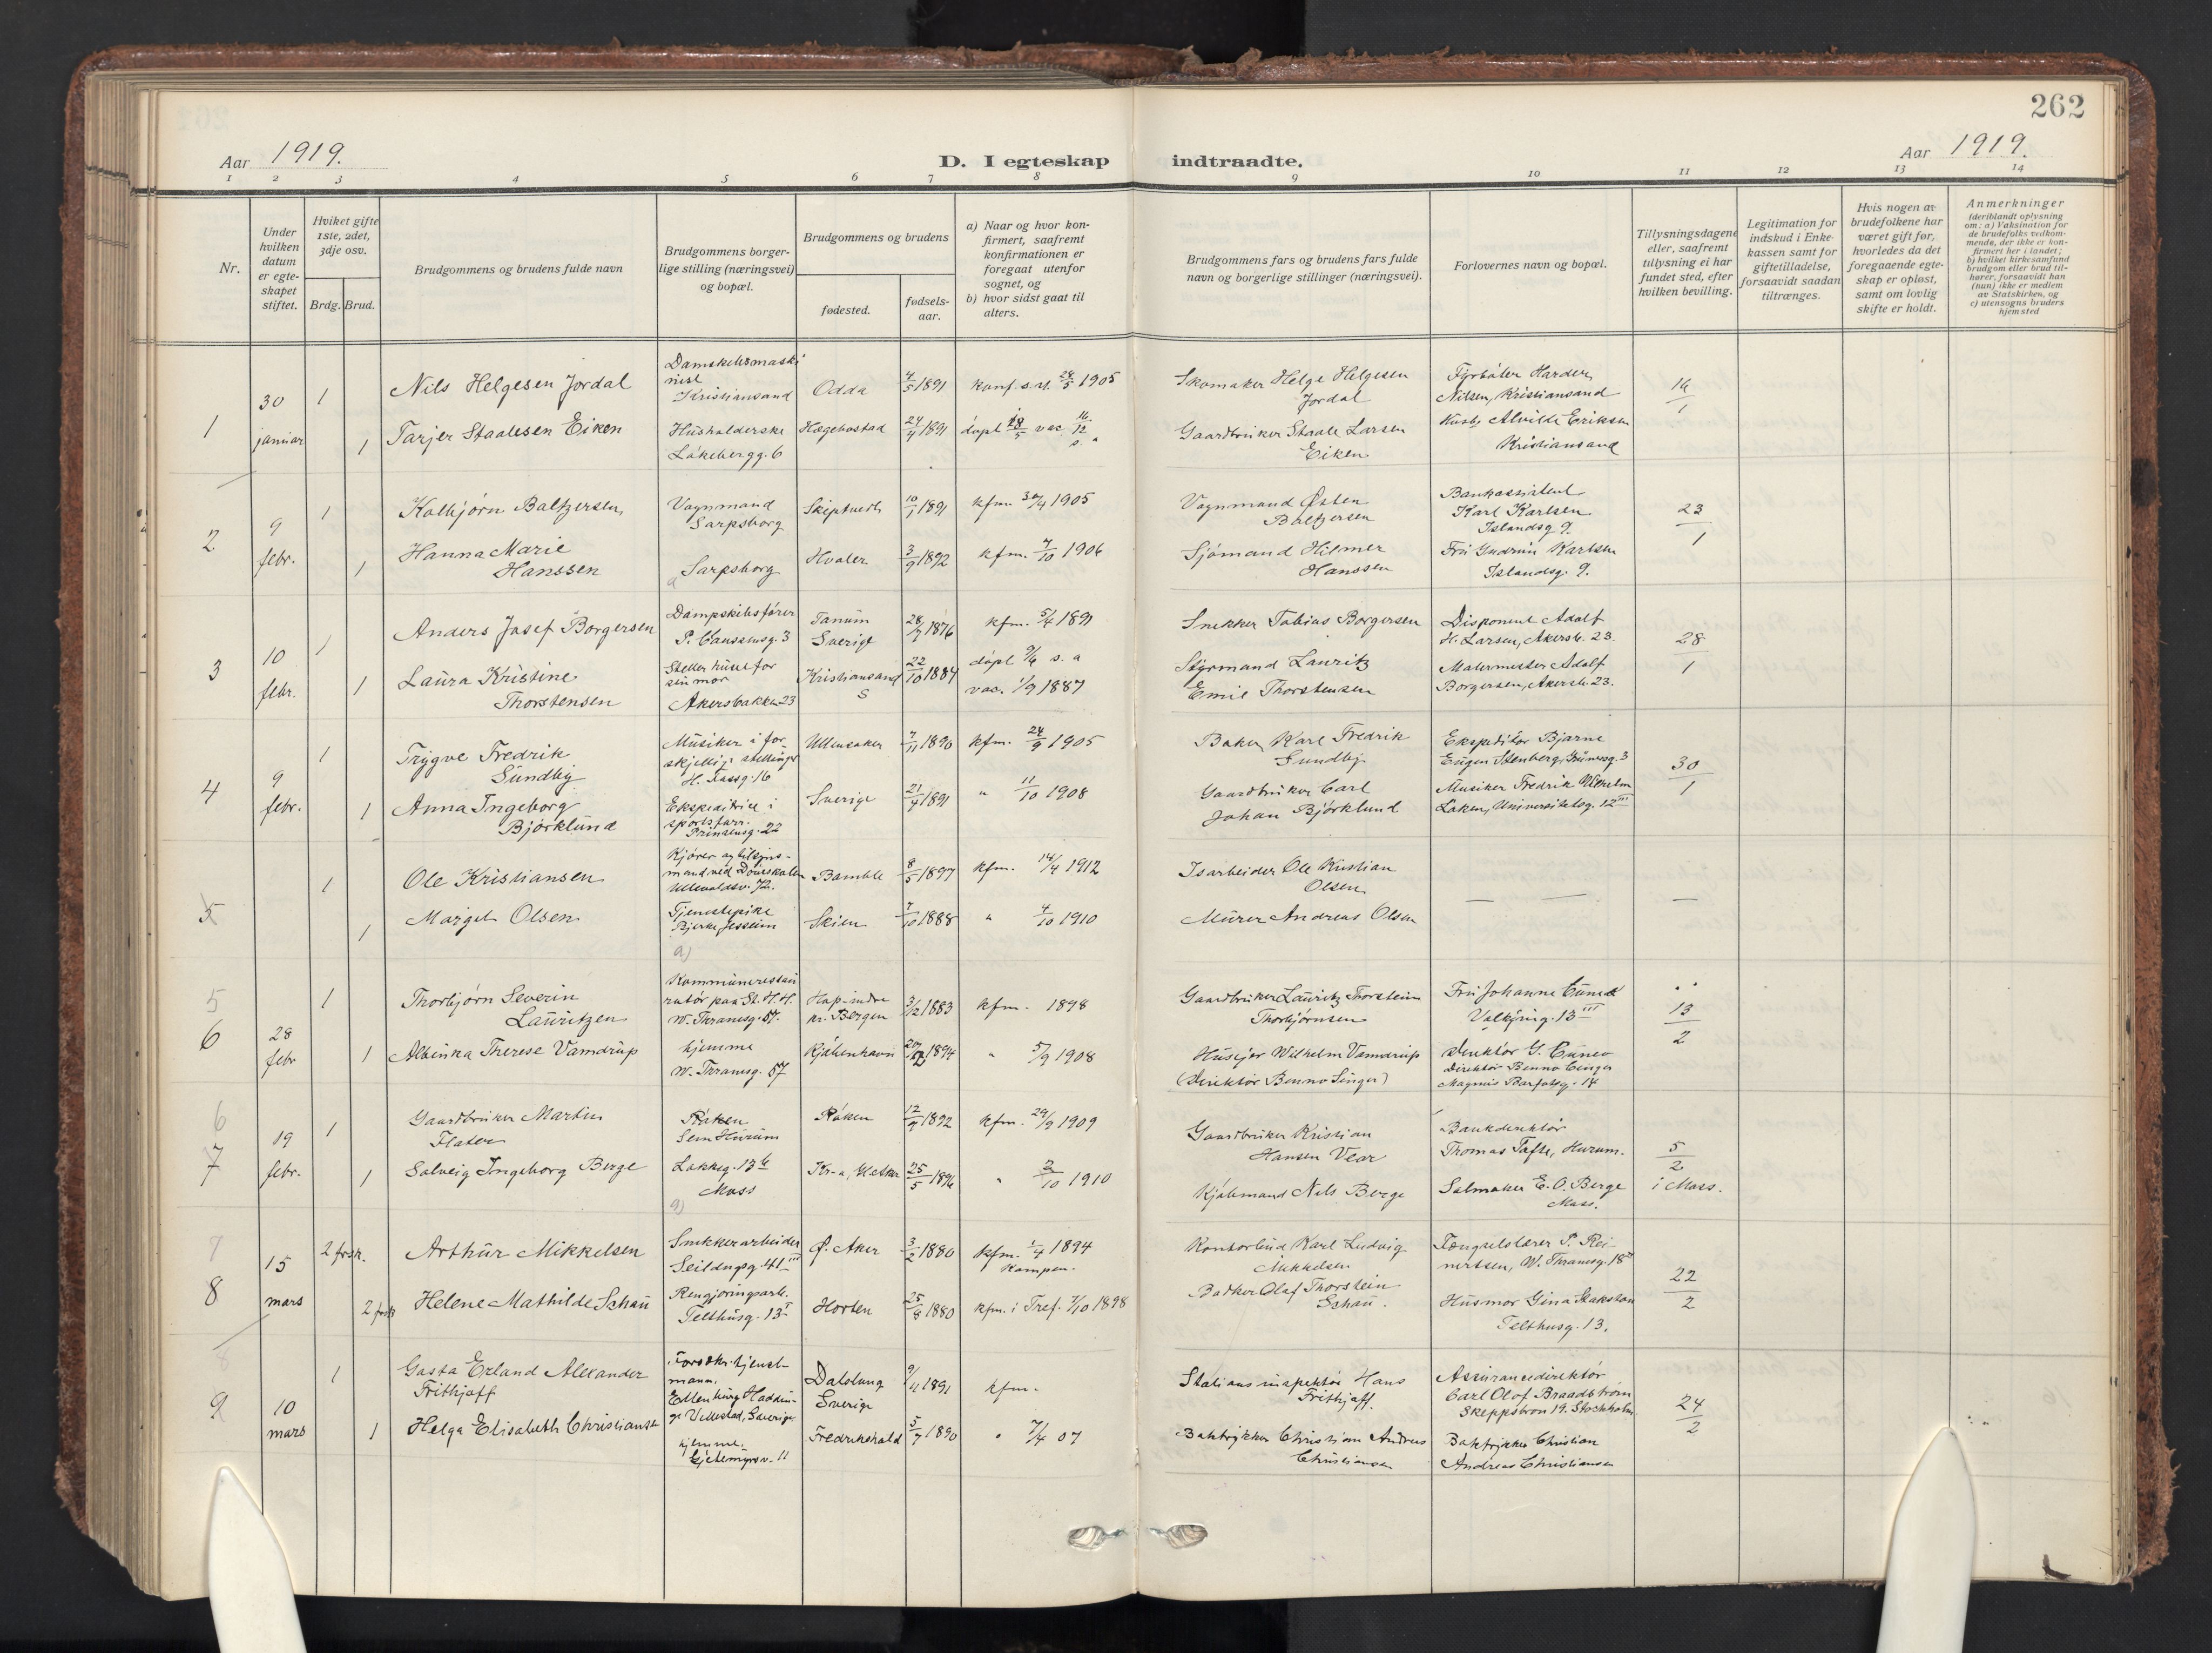 262
Aar 1919.
D. I egteskap indtraadte.
Aar 1919.
1 2 3 4 5 6 7 8 9 10 11 12 13 14
Nr.
Under
hvilken
datum
er egte-
skapet
stiftet.
Hviket gifte
1ste, 2det,
3dje osv.
Brdg. Brud.
Brudgommens og brudens fulde navn
Brudgommens borger-
lige stilling (næringsvei)
og bopæl.
Brudgommens og brudens
fødested.
fødsels-
aar.
a) Naar og hvor kon-
firmert, saafremt
konfirmationen er
foregaat utenfor
sognet, og
b) hvor sidst gaat til
alters.
Brudgommens fars og brudens fars fulde
navn og borgerlige stillinger (næringsvei).
Forlovernes navn og bopæl.
Tillysningsdagene
eller, saafremt
tillysning ei har
fundet sted, efter
hvilken bevilling.
Legitimation for
indskud i Enke-
kassen samt for
giftetilladelse,
forsaavidt saadan
tiltrænges.
Hvis nogen av
brudefolkene har
været gift før,
hvorledes da det
foregaaende egte-
skap er opløst,
samt om lovlig
skifte er holdt.
Anmerkninger
(deriblandt oplysning
om: a) Vaksination for
de brudefolks vedkom-
mende, der ikke er kon-
firmert her i landet;
b) hvilket kirkesamfund
brudgom eller brud til-
hører, forsaavidt han
(hun) ikke er medlem
av Statskirken, og
c) utensogns bruders
hjemsted
1
30
januar
1
Nils Helgesen Jordal
Damskibsmaski
nist
Kristiansand
Odda
4/5 1891
konf. s. st. 28/5 1905
Skomaker Helge Helgesen
Jordal
Fyrbøter Harder
Nilsen, Kristiansand
16/1
1
Tarjer Staalesen Eiken
Husholderske
Løkebergg. 6
Hægebostad
24/4 1891
døpt 18/5 vac 16/12
s. a
Gaardbruker Staale Larsen
Eiken
Husb. Alvilde Eriksen
Kristiansand
2
9
febr.
1
Kolbjørn Baltzersen
Vognmand
Sarpsborg
Skiptvedt
10/1 1891
kfm. 30/4 1905
Vognmand Østen
Baltzersen
Bankassistent
Karl Karlsen
Islandsg 9.
23/1
1
Hanna Marie
Hanssen
a Sarpsborg
Hvaler
3/9 1892
kfm. 7/10 1906
Sjømand Hilmer
Hanssen
Fru Gudrun Karlsen
Islandsg. 9.
3
10
febr.
1
Anders Josef Borgersen
Dampskibsfører
P. Claussensg. 3
Tanum
Sverige
28/7 1876
kfm. 5/4 1891
Snekker Tobias Borgersen
Disponent Adolf
H. Larsen, Akersb. 23.
28/1
1
Laura Kristine
Thorstensen
Steller huset for
sin mor
Akersbakken 23
Kristiansand
S
22/10 1884
døpt 9/6 s. a
vac. 1/9 1887
Styrmand Lauritz
Emil Thorstensen
Malermester Adolf
Borgersen, Akersb. 23.
4
9
febr.
1
Trygve Fredrik
Sundby
Musiker i for-
skjellig. stillinger
H. Aassg. 16
Ullensaker
7/11 1890
kfm. 24/9 1905
Baker Karl Fredrik
Sundby
Ekspeditør Bjarne
Eugen Stenberg, Grünersg. 3
30/1
1
Anna Ingeborg
Bjørklund
Ekspeditrice i
sportsforr.
Prinsensg. 22
Sverige
21/4 1891
" 11/10 1908
Gaardbruker Carl
Johan Bjørklund
Musiker Fredrik Wilhelm
Løken, Universitetsg. 12 III
5
1
Ole Kristiansen
Kjører og tilsyns-
mand ved Døveskolen
Ullevoldsv. 72.
Bamble
8/5 1897
kfm. 14/4 1912
Isarbeider Ole Kristian
Olsen
— — —
1
Margit Olsen
Tjenestepike
Bjerke Jessheim
a)
Skien
7/10 1888
" 4/10 1910
Murer Andreas Olsen
5
6
28
febr
1
Thorbjørn Severin
Lauritzen
Kommunerestau
ratør paa St. H. H.
W. Thranesg. 57.
Hop-indre
nr. Bergen
3/12 1883
kfm. 1898
Gaardbruker Lauritz Thorstein
Thorbjørnsen
Fru Johanne Cuneo
Valkyrieg. 13 III
13/2
1
Albinka Therese Vamdrup
hjemme
W. Thranesg. 57
Kjøbenhavn
1894
" 5/9 1908
Huseier Wilhelm Vamdrup
(Direktør Benno Singer)
Direktør G. Cuneo
Direktør Benno Singer
Magnus Barfotsg. 14
6
7
19
febr.
1
Gaardbruker Martin
Flaten
Røken
Sem Hurum
Røken
12/4 1892
kfm. 29/9 1909
Gaardbruker Kristian
Hansen Vear
Bankdirektør
Thomas Tofte, Hurum.
5/2
i Moss.
1
Solveig Ingeborg Berge
Løkkeg. 13 b
Moss
a)
Kr-a, Matteus
25/5 1896
" 2/10 1910
Kjøbmand Nils Berge
Salmaker E. O. Berge
Moss.
7
8
15
mars
2 frsk.
Arthur Mikkelsen
Snekkerarbeider
Seildugsg. 41 III
Ø. Aker
3/2 1880
kfm. 1/4 1894
Kampen.
Kontorbud Karl Ludvig
Mikkelsen
Fængselslærer P. Rei-
nertsen, W. Thranesg. 18
22/2
2 frsk
Helene Mathilde Schau
Rengjøringsarb.
Telthusg. 13 I
Horten
25/8 1880
kfm. i Tref. 7/10 1898
Bødker Olaf Thorstein
Schau.
Husmor Gina Stakston
Telthusg. 13.
8
9
10
mars
1
Gøsta Erland Alexander
Frithjoff
Forsikr. tjenest-
mann.
Sverige
9/11 1891
kfm.
Stationsinspektør Hans
Frithjoff.
Assurancedirektør
Carl Olof Braadstrøm
Skeppsbron 19. Stockholm
24/2
1
Helga Elisabeth Christiansen
hjemme
Gjetemyrsv. 11
Fredrikshald
5/7 1890
" 7/4 07
Boktrykker Christian Andreas
Christiansen
Boktrykker Christian
Andreas Christiansen